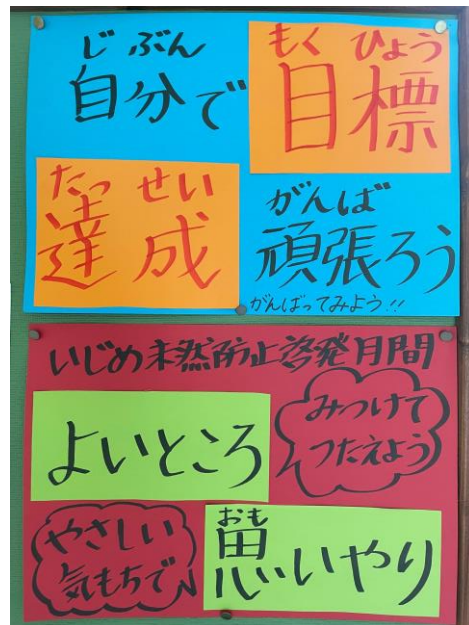 じぶん もくひょう
自分で 目標
たっせい がんば
達成 頑張ろう
がんばってみよう!!
いじめ未然防止啓発月間
よいところ
みつけて
つたえよう
やさしい
気もちで
おも
思いやり